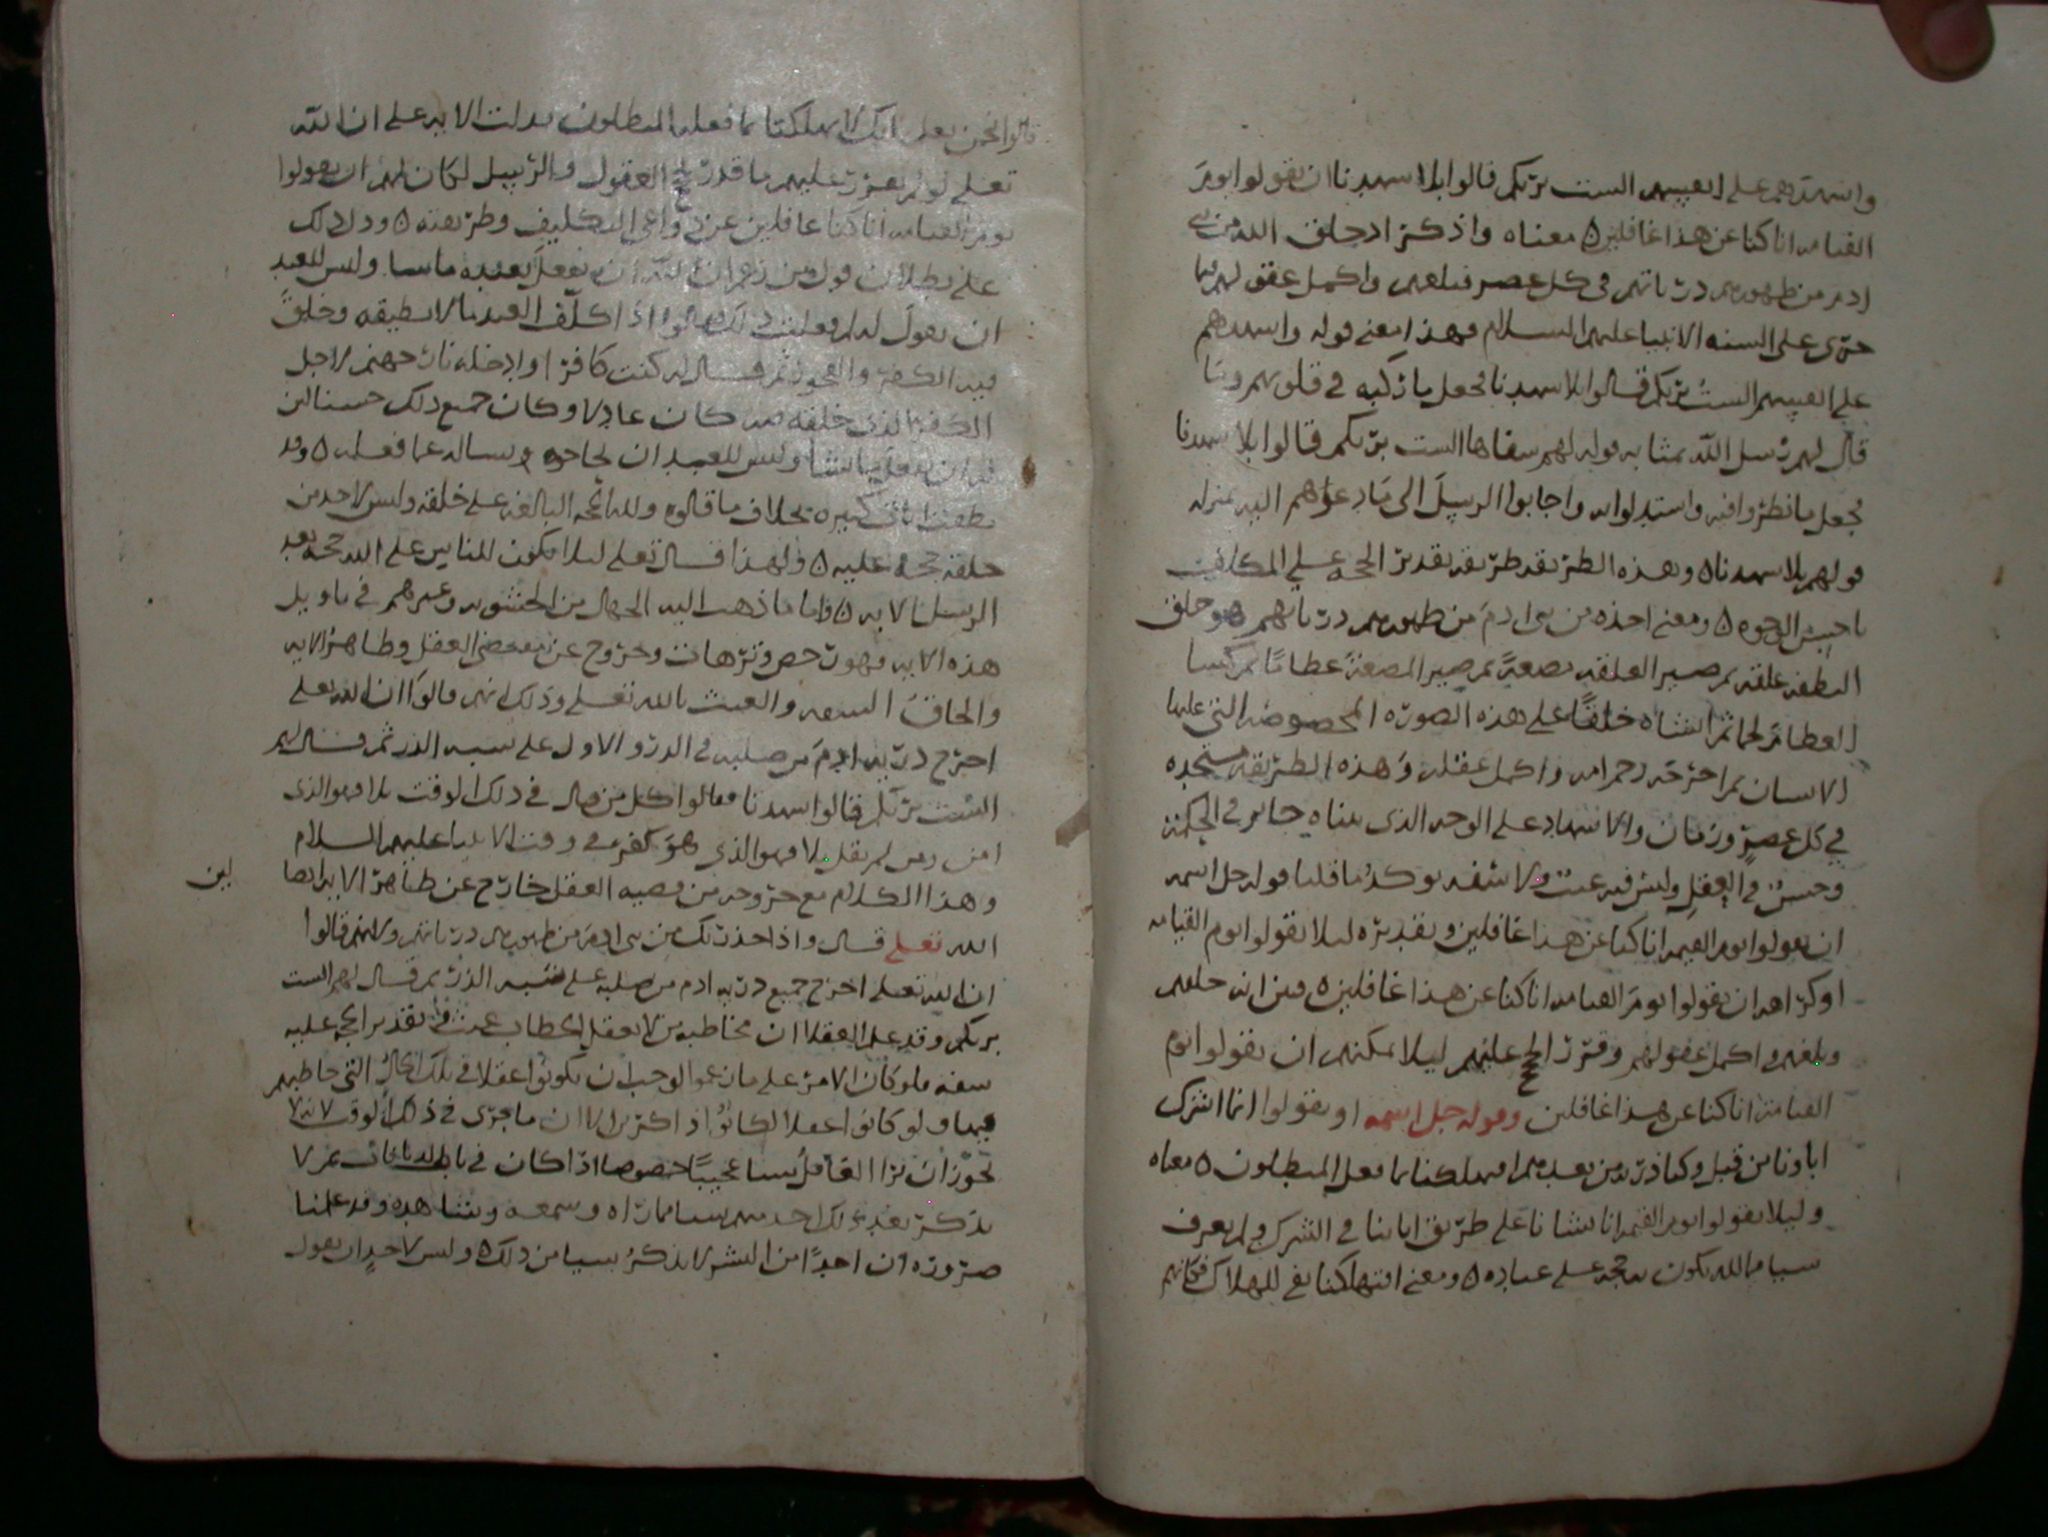 واشهدهم على انفسهم الست بربكم قالوا بلا شهدنا ان يقولوا يوم
القيامه انا كنا عن هذا غافلين ه معناه واذكر اذ خلق الله من بني
ادم من ظهورهم درياتهم في كل عصر فبلغهم واكمل عقولهم بما
جرى على السنه الانبيا عليهم السلام فهذا معنى قوله واشهدهم
على انفسهم الست بربكم قالوا بلا شهدنا فجعل ما ركبه في قلوبهم وما
قال لهم رسل الله بمثابه قوله لهم شفاها الست بربكم قالوا بلا شهدنا
فجعل ما نظروا فيه واستدلوا به واجابوا الرسل الى ما دعوهم اليه بمنزله
قولهم بلا شهدنا ه وهذه الطريقه طريقه تقدير الحجه على المكلفين
باحسن الوجوه ه ومعنى اخذه من بني ادم من ظهورهم درياتهم هو خلق
النطفه علقه ثم صير العلقه مضغة ثم صير المضغة عظامًا ثم كسا
العظام لحما ثم انشاه خلقًا على هذه الصوره المخصوصه التي عليها
الانسان ثم اخرجه رحم امه واكمل عقله وهذه الطريقه مستجده
في كل عصرٍ وزمان والاشهاد على الوجه الذي بيناه جايز في الحكمة
وحسنٌ في العقل وليس فيه عبث ولا سفه يوكد ما قلنا قوله جل اسمه
ان يقولوا يوم القيمه انا كنا عن هذا غافلين وتقديره ليلا يقولوا يوم القيامه
او كراهه ان يقولوا يوم القيامه انا كنا عن هذا غافلين ه فبين انه خلقهم
وبلغهم واكمل عقولهم وقرر الحجج عليهم ليلا يمكنهم ان يقولوا يوم
القيامة انا كنا عن هذا غافلين وقوله جل اسمه او يقولوا انما اشرك
اباونا من قبل وكنا ذرية من بعدهم افتهلكنا بما فعل المبطلون ه معناه
وليلا يقولوا يوم القيمه انا نشانا على طريق ابائنا في الشرك ولم نعرف
سيا ما لله تكون به حجه على عباده ه ومعنى افتهلكنا نفي للهلاك فكانهم
قالوا نحن نعلم انك لا تهلكنا بما فعله المبطلون فدلت الايه على ان الله
تعلى لو لم يقرر عليهم ما قدر في العقول والرسل لكان لهم ان يقولوا
يوم القيامه انا كنا غافلين عن دواعي التكليف وطريقته ه ودل ذلك
على بطلان قول من زعم ان لله ان يفعل بعبده ما يشا وليس للعبد
ان يقول له لم فعلت ذلك قالوا اذا كلف العبد ما لا يطيقه وخلق
فيه الكفر والفجور ثم قال له كنت كافرا وادخله نار جهنم لاجل
الكفر الذي خلقه فيه كان عادلا وكان جميع ذلك حسنا لان
له ان يفعل ما يشا وليس للعبد ان يحاجه ويساله عما فعله ه وقد
نطقت ايات كثيره بخلاف ما قالوه ولله الحجه البالغه على خلقه وليس لاحد من
خلقه حجة عليه ه ولهذا قال تعلى ليلا يكون للناس على الله حجه بعد
الرسل الايه ه واما ما ذهب اليه الجهال من الحشويه وغيرهم في تاويل
هذه الايه فهو تخرص وترهات وخروج عن مقتضى العقل وظاهر الايه
والحاق السفه والعبث بالله تعلى وذلك انهم قالوا ان الله تعلى
اخرج دريه ادم من صلبه في الدرو الاول على سبه الذر ثم قال لهم
الست بربكم قالوا شهدنا فقالوا كل من قال في ذلك الوقت بلا فهو الذي
امن ومن لم يقل بلا فهو الذي هو كفر في وقت الانبيا عليهم السلام
وهذا الكلام مع خروجه من قضيه العقل خارج عن ظاهر الايه ايضا لان
الله تعلى قال واذ اخذ ربك من بني ادم من ظهورهم درياتهم ولانهم قالوا
ان الله تعلى اخرج جميع دريه ادم من صلبه على شبه الذر ثم قال لهم الست
بربكم وقد علم العقلا ان مخاطبه من لا يعقل الخطاب عبث وتقدير الحجه عليه
سفه فلو كان الامر على ما زعموا لوجب ان يكونوا عقلا في تلك الحال التي خاطبهم
فيها ولو كانوا عقلا لكانوا ذاكرين الان ما جرى في ذلك الوقت لانه لا
يجوز ان يرا العاقل شيا عجيبًا خصوصا اذا كان في باب الديانات ثم لا
يذكر بعد ذلك احد منهم شيا مما راه وسمعه وشاهده وقد علمنا
ضروره ان احدًا من البشر لا يذكر شيا من ذلك ه وليس لاحدٍ ان يقول